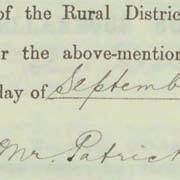 of the Rural Distric
r the above-mention
day of Septemb
Mr. Patrick